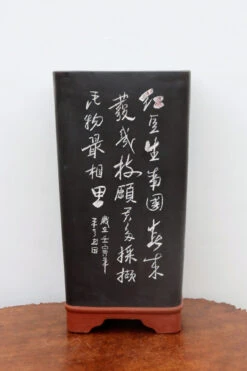 红豆生南國春来
發幾枝願君多採撷
此物最相思
歲在壬寅年